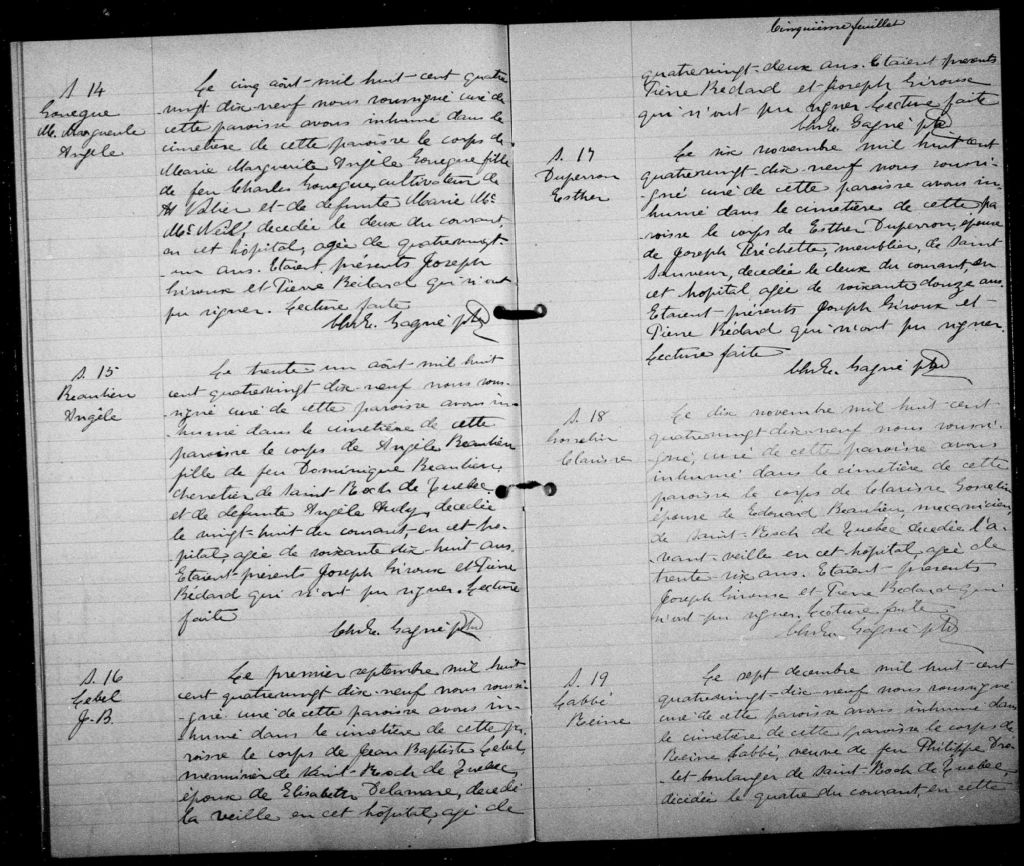 S. 14
Goneque
M. Marguerite
Angèle
Le cinq août mil huit-cent quatre
vingt dix-neuf nous soussigné curé de
cette paroisse avons inhumé dans le
cimetière de cette paroisse le corps de
Marie Marguerite Angèle Goneque fille
de feu Charles Goneque, cultivateur de
St Valier et de defunte Marie Mc
Mc Neil, decedée le deux du courant
en cet hôpital, agée de quatrevingt-
un ans. Etaient présents Joseph
Giroux et Pierre Bédard qui n'ont
pu signer. Lecture faite
Chs E. Gagné ptre
S. 15
Beaulieu
Angèle
Le trente un août mil huit
cent quatrevingt dix-neuf nous sous-
signé curé de cette paroisse avons in-
humé dans le cimetière de cette
paroisse le corps de Angèle Beaulieu
fille de feu Dominique Beaulieu,
charretier de Saint-Roch de Quebec
et de defunte Angèle, decedée
le vingt-huit du courant, en cet hô-
pital, agée de soixante dix-huit ans.
Etaient présents Joseph Giroux et Pierre
Bédard qui n'ont pu signer. Lecture
faite
Chs E. Gagné ptre
S. 16
Lebel
J-B.
Le premier septembre mil huit
cent quatrevingt dix-neuf nous soussi-
-gné curé de cette paroisse avons in-
humé dans le cimetière de cette pa-
roisse le corps de Jean Baptiste Lebel,
menuisier de Saint-Roch de Quebec,
époux de Elisabeth Delamare, decedé
la veille en cet hôpital, agé de
Cinquième feuillet
quatrevingt-deux ans. Etaient présents
Pierre Bédard et Joseph Giroux
qui n'ont pu signer Lecture faite
Chs E. Gagné ptre
S. 17
Duperron
Esther
Le six novembre mil huit cent
quatrevingt-dix-neuf nous soussi-
gné curé de cette paroisse avons in-
humé dans le cimetière de cette pa-
roisse le corps de Esther Duperron, épouse
de Joseph Fréchette, meublier, de Saint
Sauveur, decedée le deux du courant, en
cet hôpital, agée de soixante douze ans.
Etaient présents Joseph Giroux et
Pierre Bédard qui n'ont pu signer.
Lecture faite
Chs E. Gagné ptre
S. 18
Gosselin
Clarisse
Le dix novembre mil huit-cent
quatrevingt dix-neuf nous soussi-
gné, curé de cette paroisse avons
inhumé dans le cimetière de cette
paroisse le corps de Clarisse Gosselin
épouse de Edouard Beaulieu, mecanicien,
de Saint-Roch de Québec, decedée l'a-
vant-veille en cet hôpital, agée de
trente-six ans. Etaient présents
Joseph Giroux et Pierre Bedard qui
n'ont pu signer. Lecture faite
Chs E. Gagné ptre
S. 19
Labbé
Reine
Le sept decembre mil huit-cent
quatrevingt-dix-neuf nous soussigné
curé de cette paroisse avons inhumé dans
le cimetière de cette paroisse le corps de
Reine Labbé, veuve de feu Philippe Dro-
let boulanger de Saint-Roch de Quebec,
décédée le quatre du courant en cette